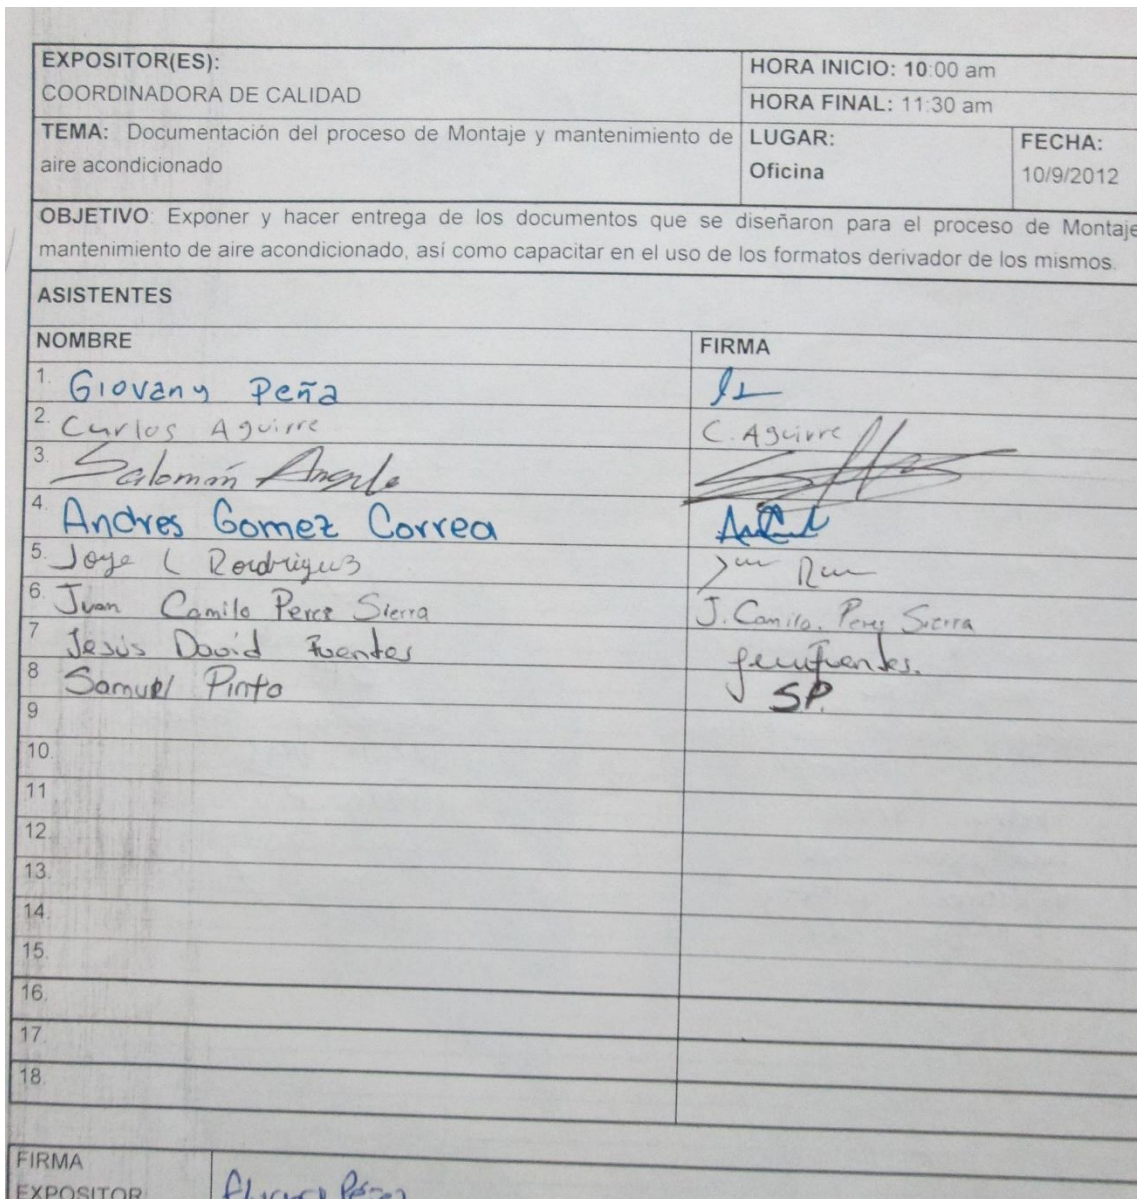 EXPOSITOR(ES):
COORDINADORA DE CALIDAD
HORA INICIO: 10:00 am
HORA FINAL: 11:30 am
TEMA: Documentación del proceso de Montaje y mantenimiento de
aire acondicionado
LUGAR:
Oficina
FECHA:
10/9/2012
OBJETIVO: Exponer y hacer entrega de los documentos que se diseñaron para el proceso de Montaje
mantenimiento de aire acondicionado, así como capacitar en el uso de los formatos derivador de los mismos.
ASISTENTES
NOMBRE FIRMA
1. Giovany Peña
2. Carlos Aguirre C. Aguirre
3. Salomón Angulo
4. Andres Gomez Correa
5. Joge L Rordriguez
6. Juan Camilo Perez Sierra J. Camilo. Perez Sierra
7 Jesús David Fuentes
8 Samuel Pinto SP.
9
10.
11
12.
13.
14.
15.
16.
17.
18.
FIRMA
EXPOSITOR Pérez